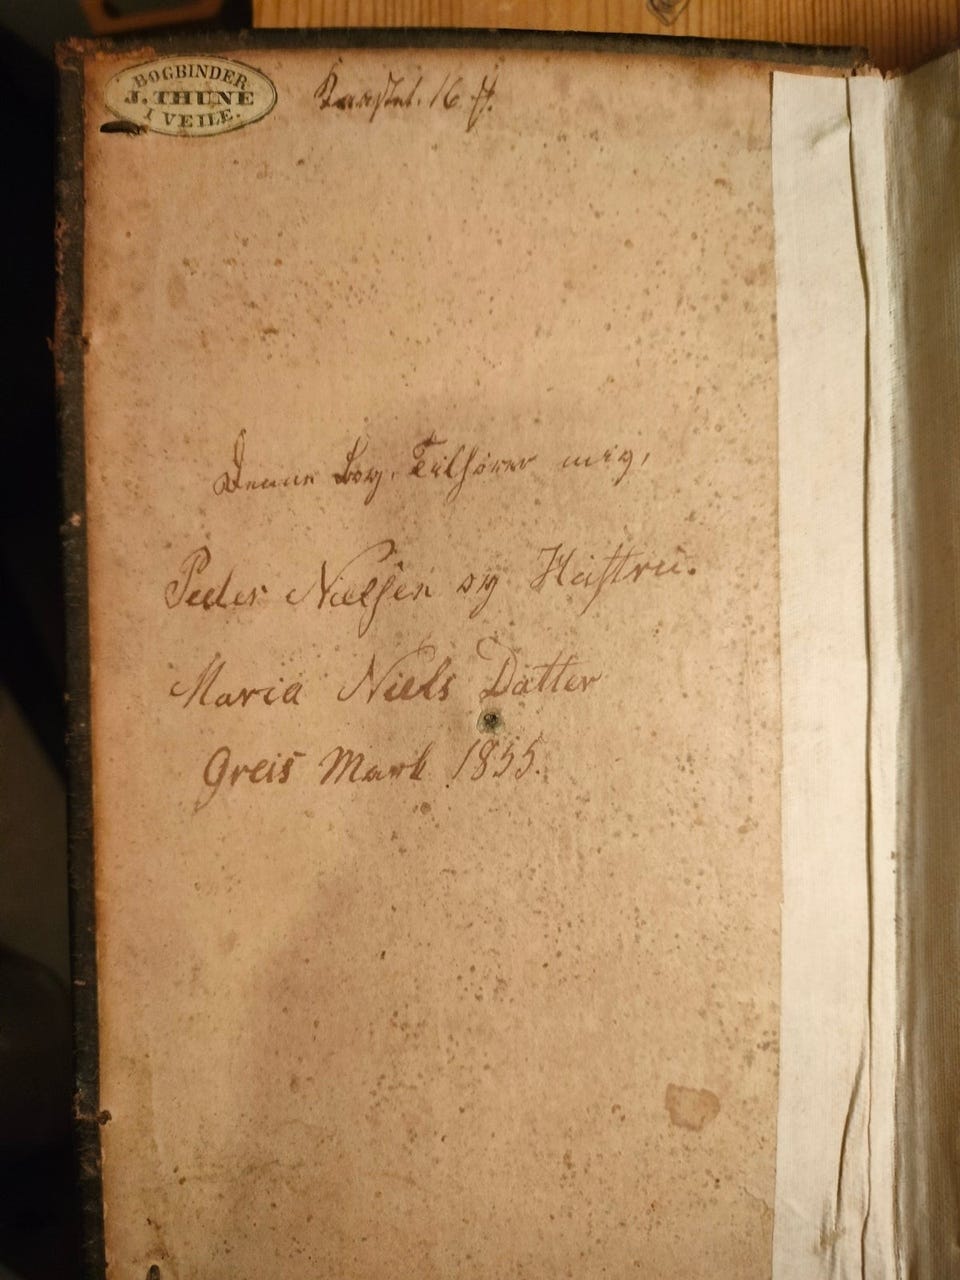 BOGBINDER
J. THUNE
I VEILE.
Kaastet. 16 β.
Denne Bog. Tilhører mig,
Peder Nielsen og Hustru.
Maria Niels Datter
Greis Mark 1855.